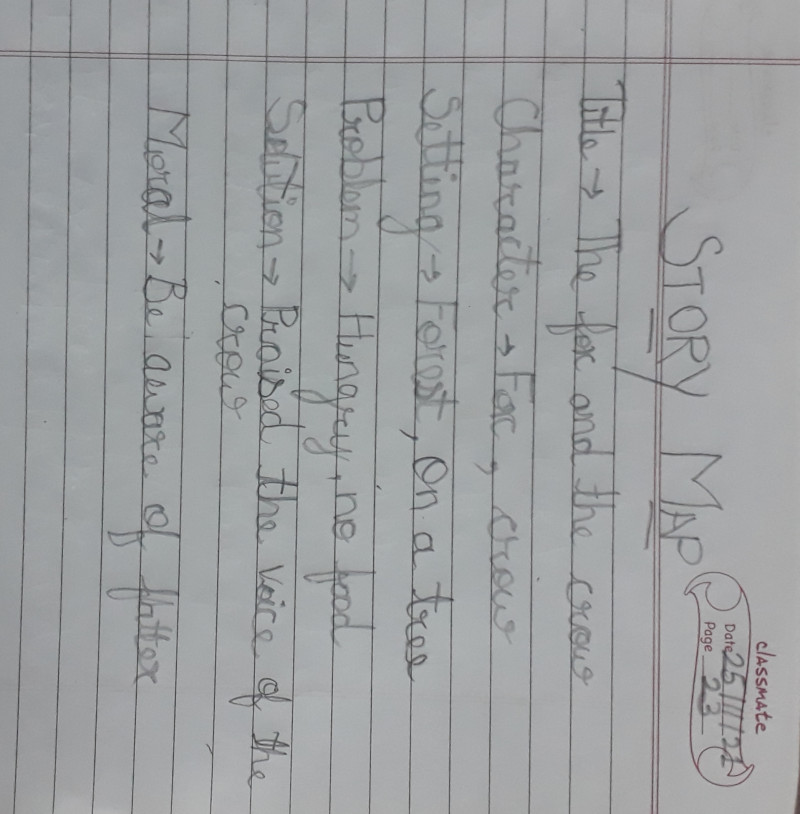 classmate
Date 25/11/22
Page 23
STORY MAP
Title → The fox and the crow
Character → Fox, crow
Setting → Forest, On a tree
Problem → Hungry, no food
Solution → Praised the voice of the
crow
Moral → Be aware of flatter